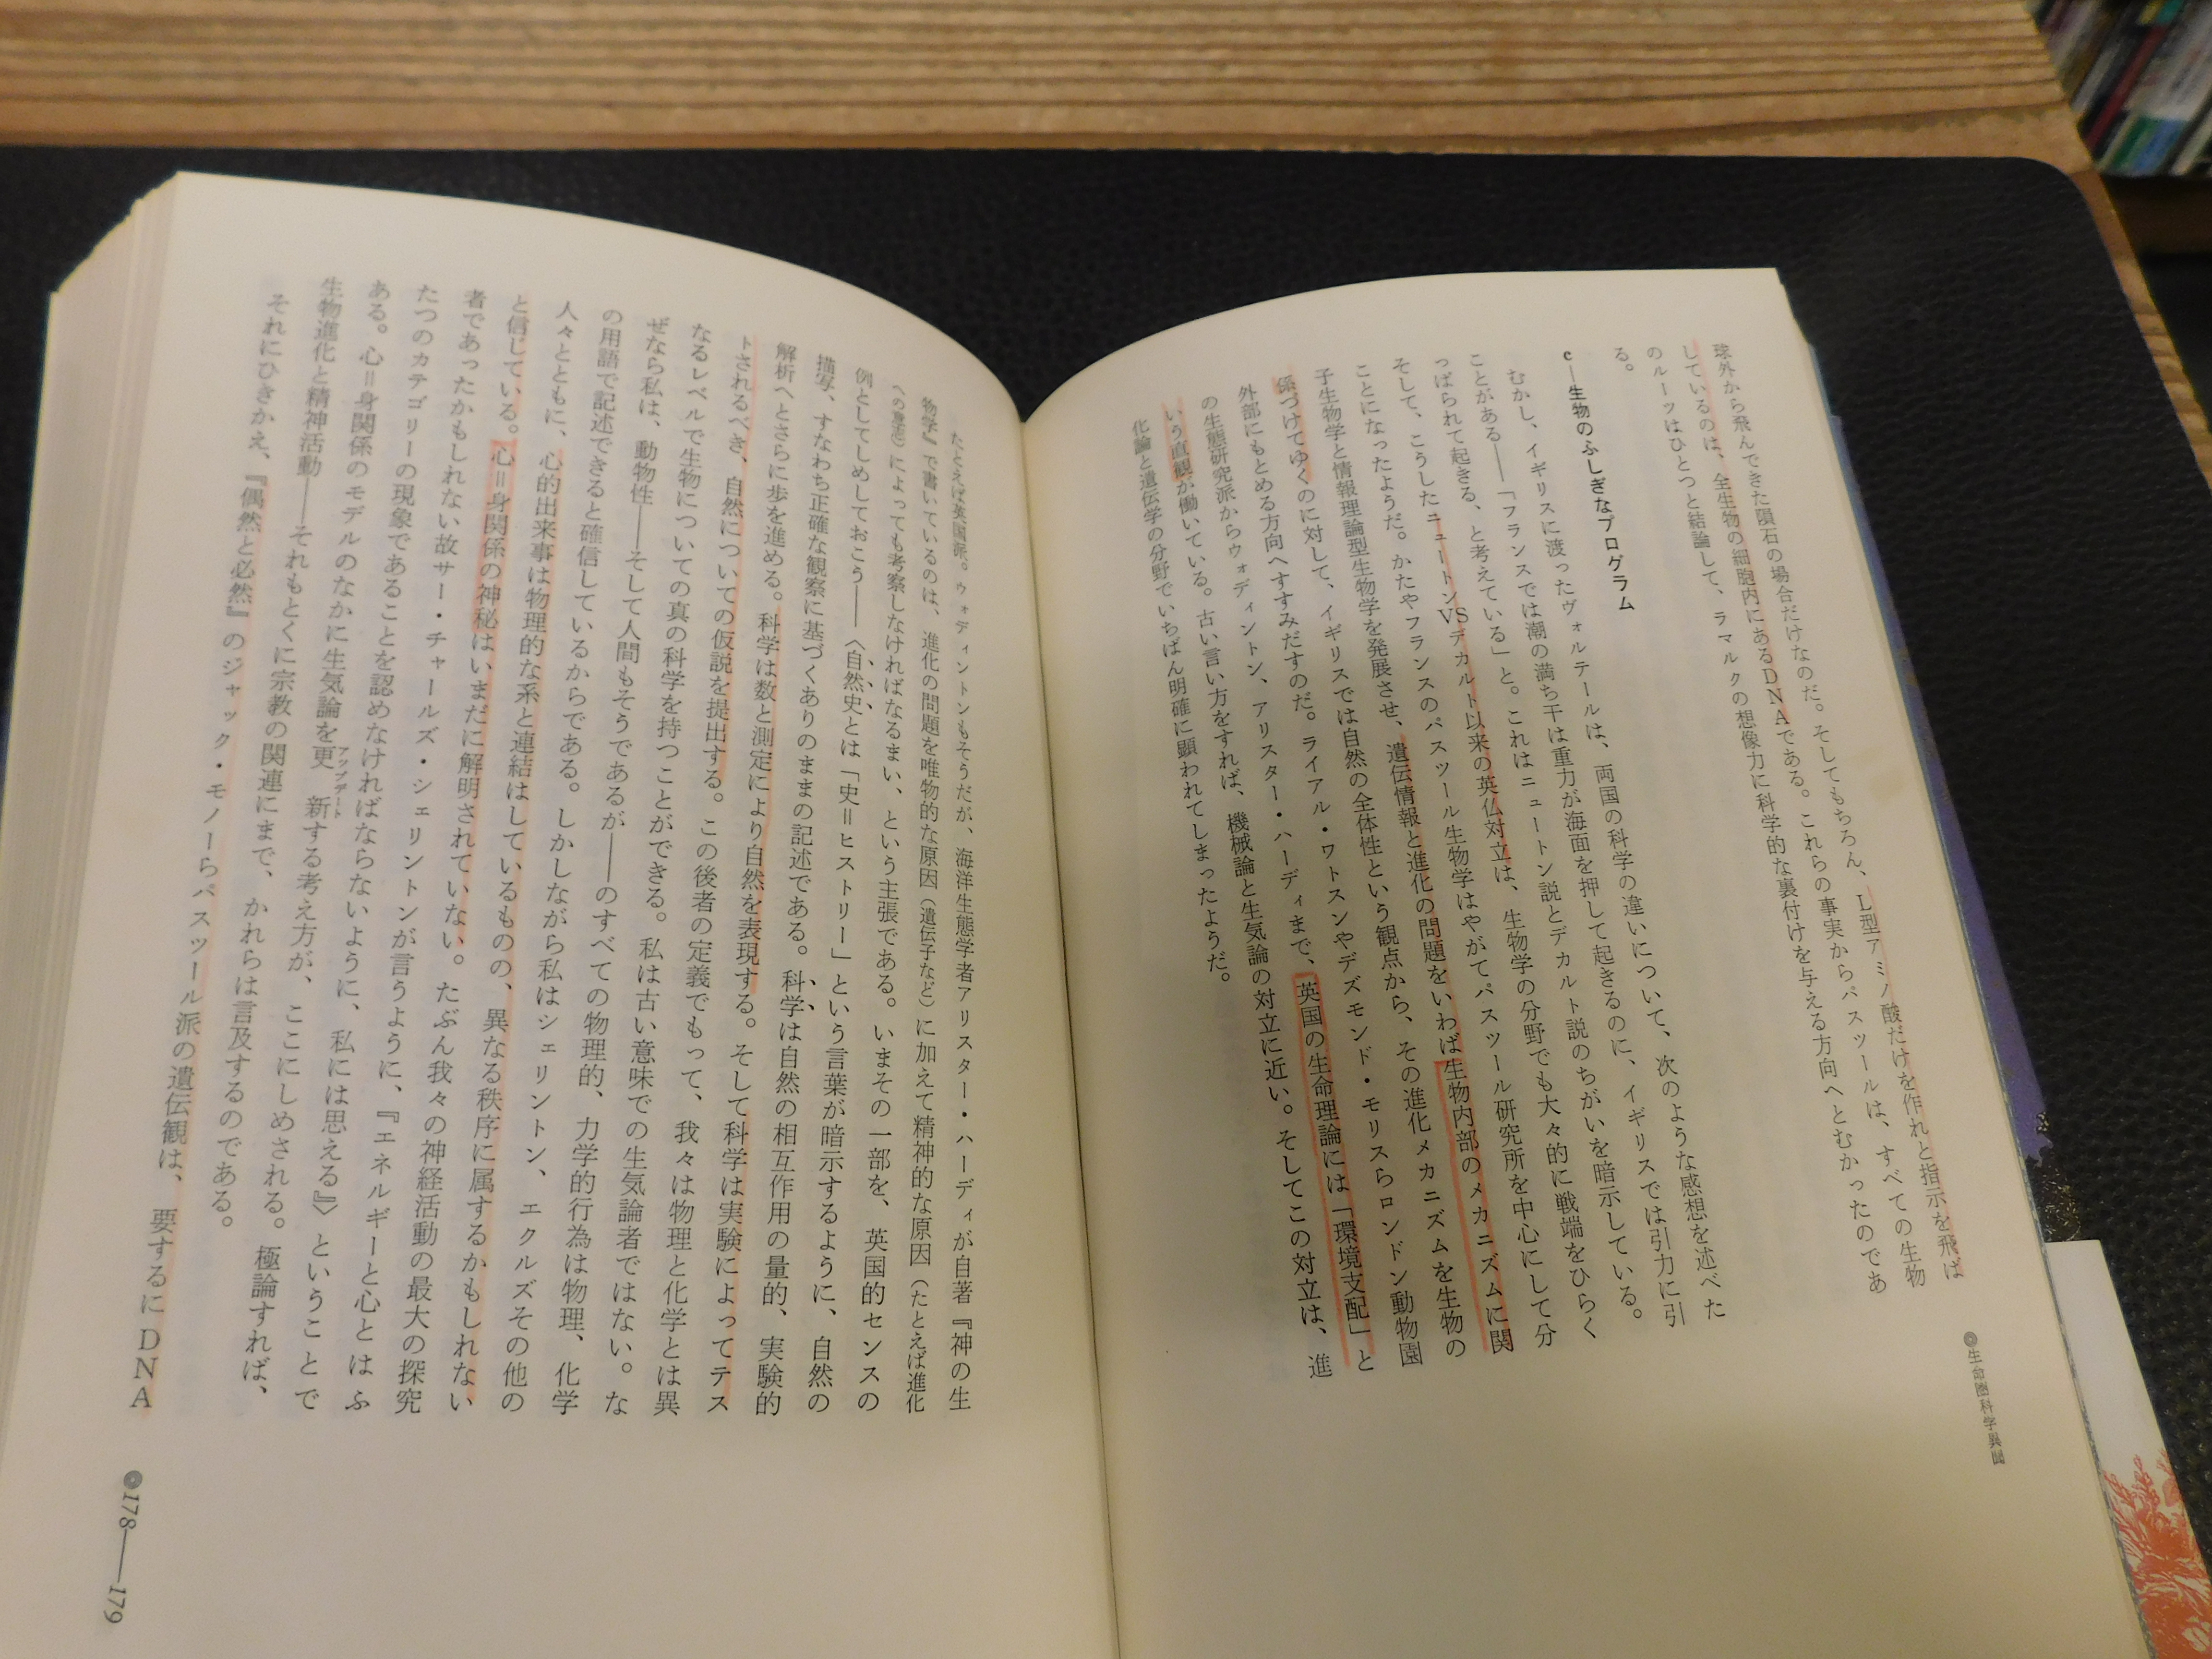 球外から飛んできた隕石の場合だけなのだ。そしてもちろん、L型アミノ酸だけを作れと指示を飛ば
しているのは、全生物の細胞内にあるDNAである。これらの事実からパスツールは、すべての生物
のルーツはひとつと結論して、ラマルクの想像力に科学的な裏付けを与える方向へとむかったのであ
る。
c—生物のふしぎなプログラム
むかし、イギリスに渡ったヴォルテールは、両国の科学の違いについて、次のような感想を述べた
ことがある——「フランスでは潮の満ち干は重力が海面を押して起きるのに、イギリスでは引力に引
っぱられて起きる、と考えている」と。これはニュートン説とデカルト説のちがいを暗示している。
そして、こうしたニュートンVSデカルト以来の英仏対立は、生物学の分野でも大々的に戦端をひらく
ことになったようだ。かたやフランスのパスツール生物学はやがてパスツール研究所を中心にして分
子生物学と情報理論型生物学を発展させ、遺伝情報と進化の問題をいわば生物内部のメカニズムに関
係づけてゆくのに対して、イギリスでは自然の全体性という観点から、その進化メカニズムを生物の
外部にもとめる方向へすすみだすのだ。ライアル・ワトスンやデズモンド・モリスらロンドン動物園
の生態研究派からウォディントン、アリスター・ハーディまで、英国の生命理論には「環境支配」と
いう直観が働いている。古い言い方をすれば、機械論と生気論の対立に近い。そしてこの対立は、進
化論と遺伝学の分野でいちばん明確に顕われてしまったようだ。
●生命圏科学異聞
たとえば英国派。ウォディントンもそうだが、海洋生態学者アリスター・ハーディが自著『神の生
物学』で書いているのは、進化の問題を唯物的な原因（遺伝子など）に加えて精神的な原因（たとえば進化
への）によっても考察しなければなるまい、という主張である。いまその一部を、英国的センスの
例としてしめしておこう——〈自然史とは「史＝ヒストリー」という言葉が暗示するように、自然の
描写、すなわち正確な観察に基づくありのままの記述である。科学は自然の相互作用の量的、実験的
解析へとさらに歩を進める。科学は数と測定により自然を表現する。そして科学は実験によってテス
トされるべき、自然についての仮説を提出する。この後者の定義でもって、我々は物理と化学とは異
なるレベルで生物についての真の科学を持つことができる。私は古い意味での生気論者ではない。な
ぜなら私は、動物性——そして人間もそうであるが——のすべての物理的、力学的行為は物理、化学
の用語で記述できると確信しているからである。しかしながら私はシェリントン、エクルズその他の
人々とともに、心的出来事は物理的な系と連結はしているものの、異なる秩序に属するかもしれない
と信じている。心＝身関係の神秘はいまだに解明されていない。たぶん我々の神経活動の最大の探究
者であったかもしれない故サー・チャールズ・シェリントンが言うように、『エネルギーと心とはふ
たつのカテゴリーの現象であることを認めなければならないように、私には思える』〉ということで
ある。心＝身関係のモデルのなかに生気論を更新する考え方が、ここにしめされる。極論すれば、
アップデート
生物進化と精神活動——それもとくに宗教の関連にまで、かれらは言及するのである。
それにひきかえ、『偶然と必然』のジャック・モノーらパスツール派の遺伝観は、要するにDNA
●178——179